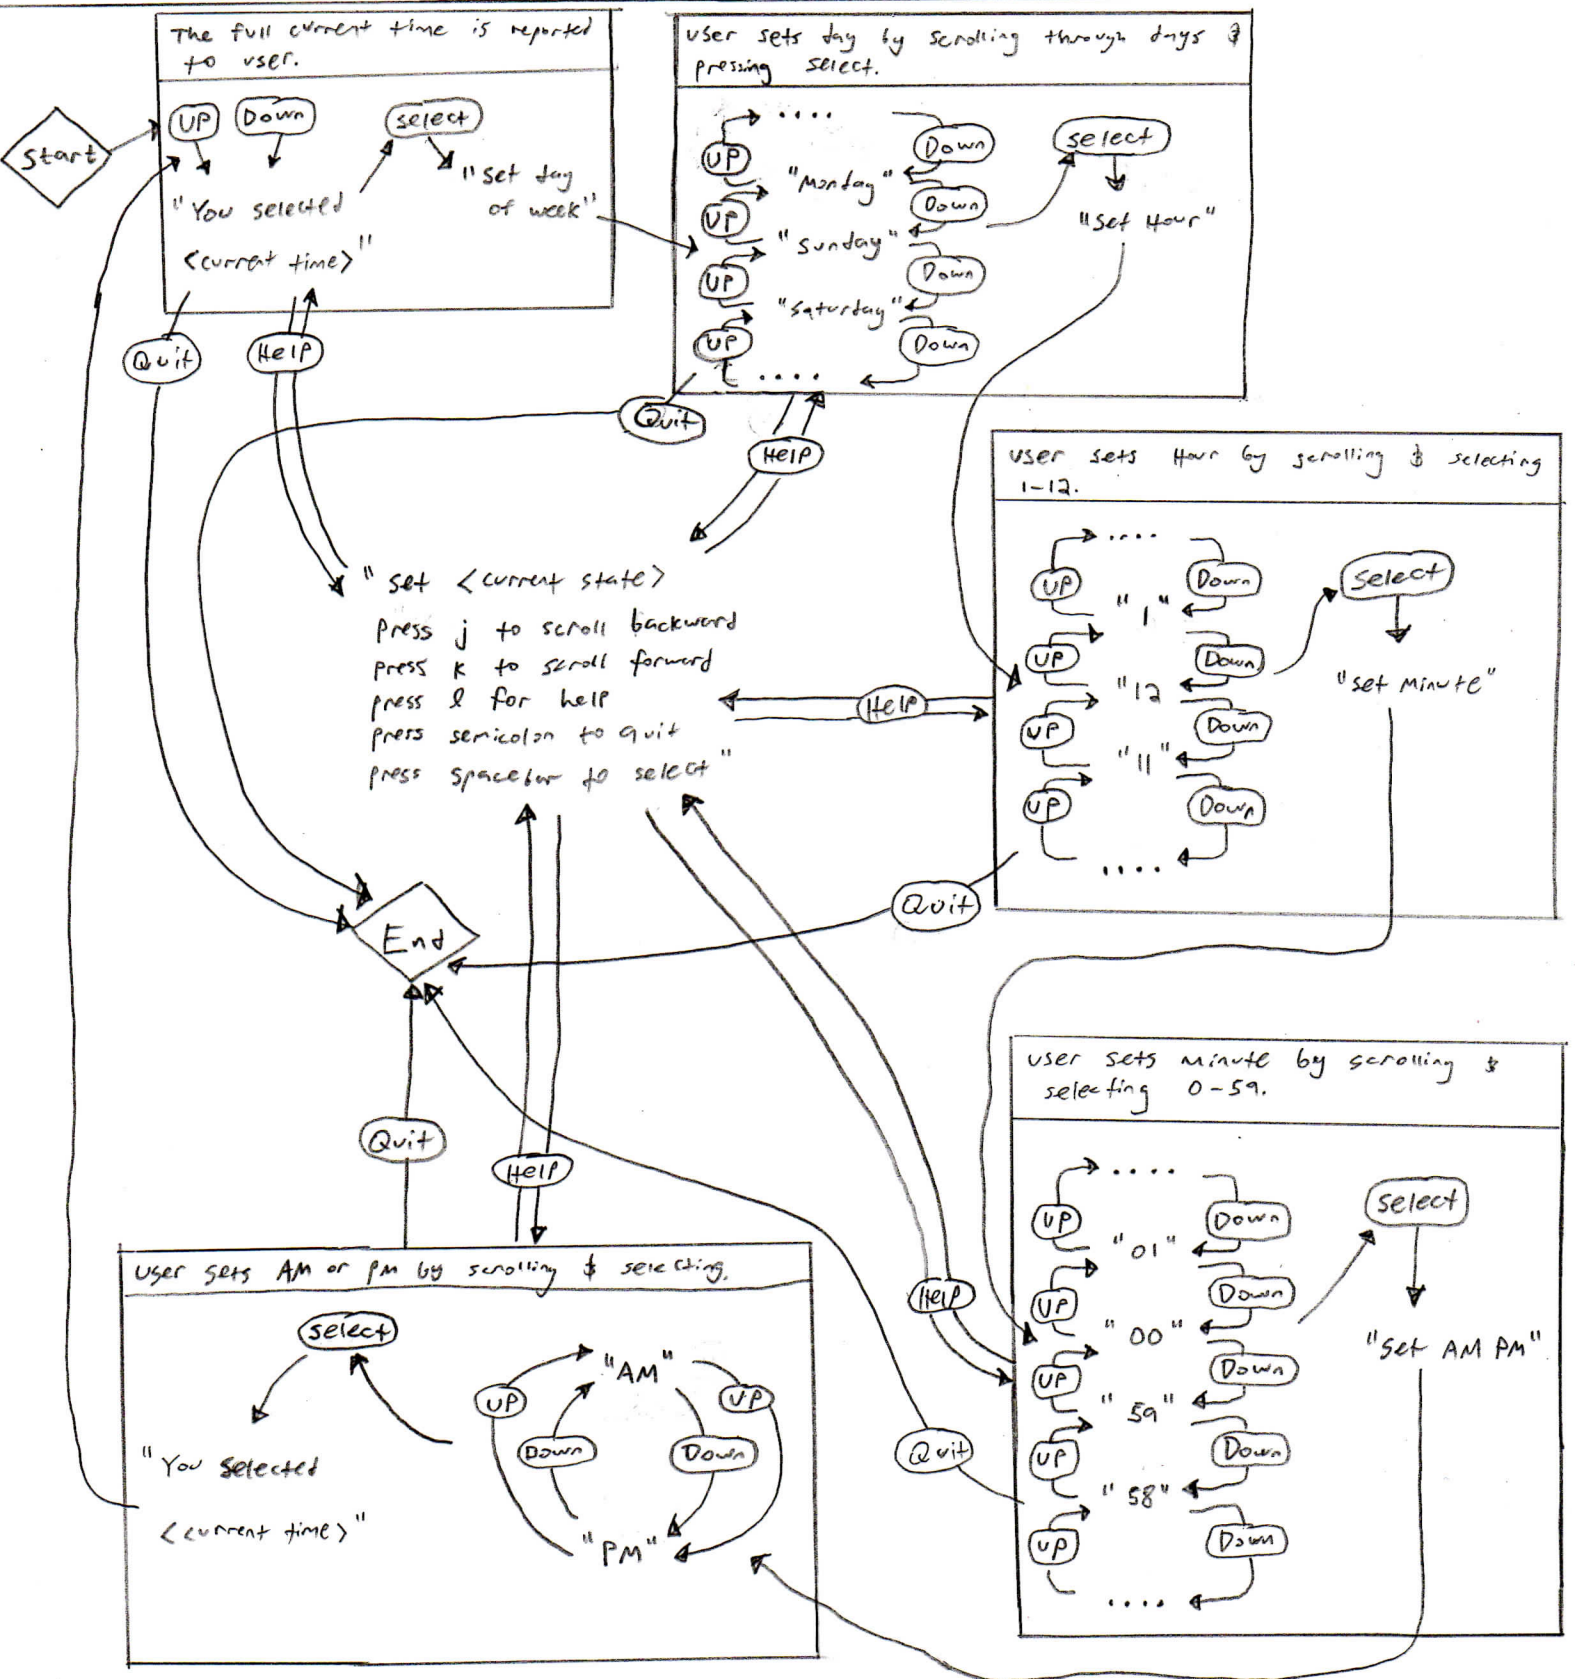 The full current time is reported
to user.
Start
UP
Down
select
"You selected
<current time>"
"set day
of week"
Quit
Help
user sets day by scrolling through days &
pressing select.
....
UP
Down
"Monday"
UP
Down
"Sunday"
UP
Down
"Saturday"
UP
Down
....
select
"Set Hour"
Quit
Help
user sets Hour by scrolling & selecting
1-12.
....
UP
Down
"1"
UP
Down
"12
UP
Down
"11"
UP
Down
....
select
"set Minute"
Help
Quit
"set <current state>
press j to scroll backward
press k to scroll forward
press l for help
press semicolon to quit
press spacebar to select"
End
user sets minute by scrolling &
selecting 0-59.
....
UP
Down
"01"
UP
Down
"00"
UP
Down
"59"
UP
Down
"58"
UP
Down
....
select
"Set AM PM"
Help
Quit
Quit
Help
user sets AM or PM by scrolling & selecting.
select
"You selected
<current time>"
"AM"
UP
UP
Down
Down
"PM"